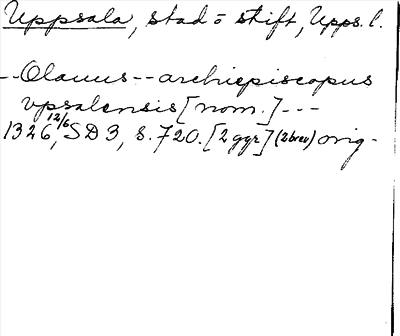 Uppsala, stad o stift, Upps. l.
--Olauus--archiepiscopus
vpsalensis [nom.]---
1326 12/6, SD3, s. 720. [2 ggr] (2 brev) orig.